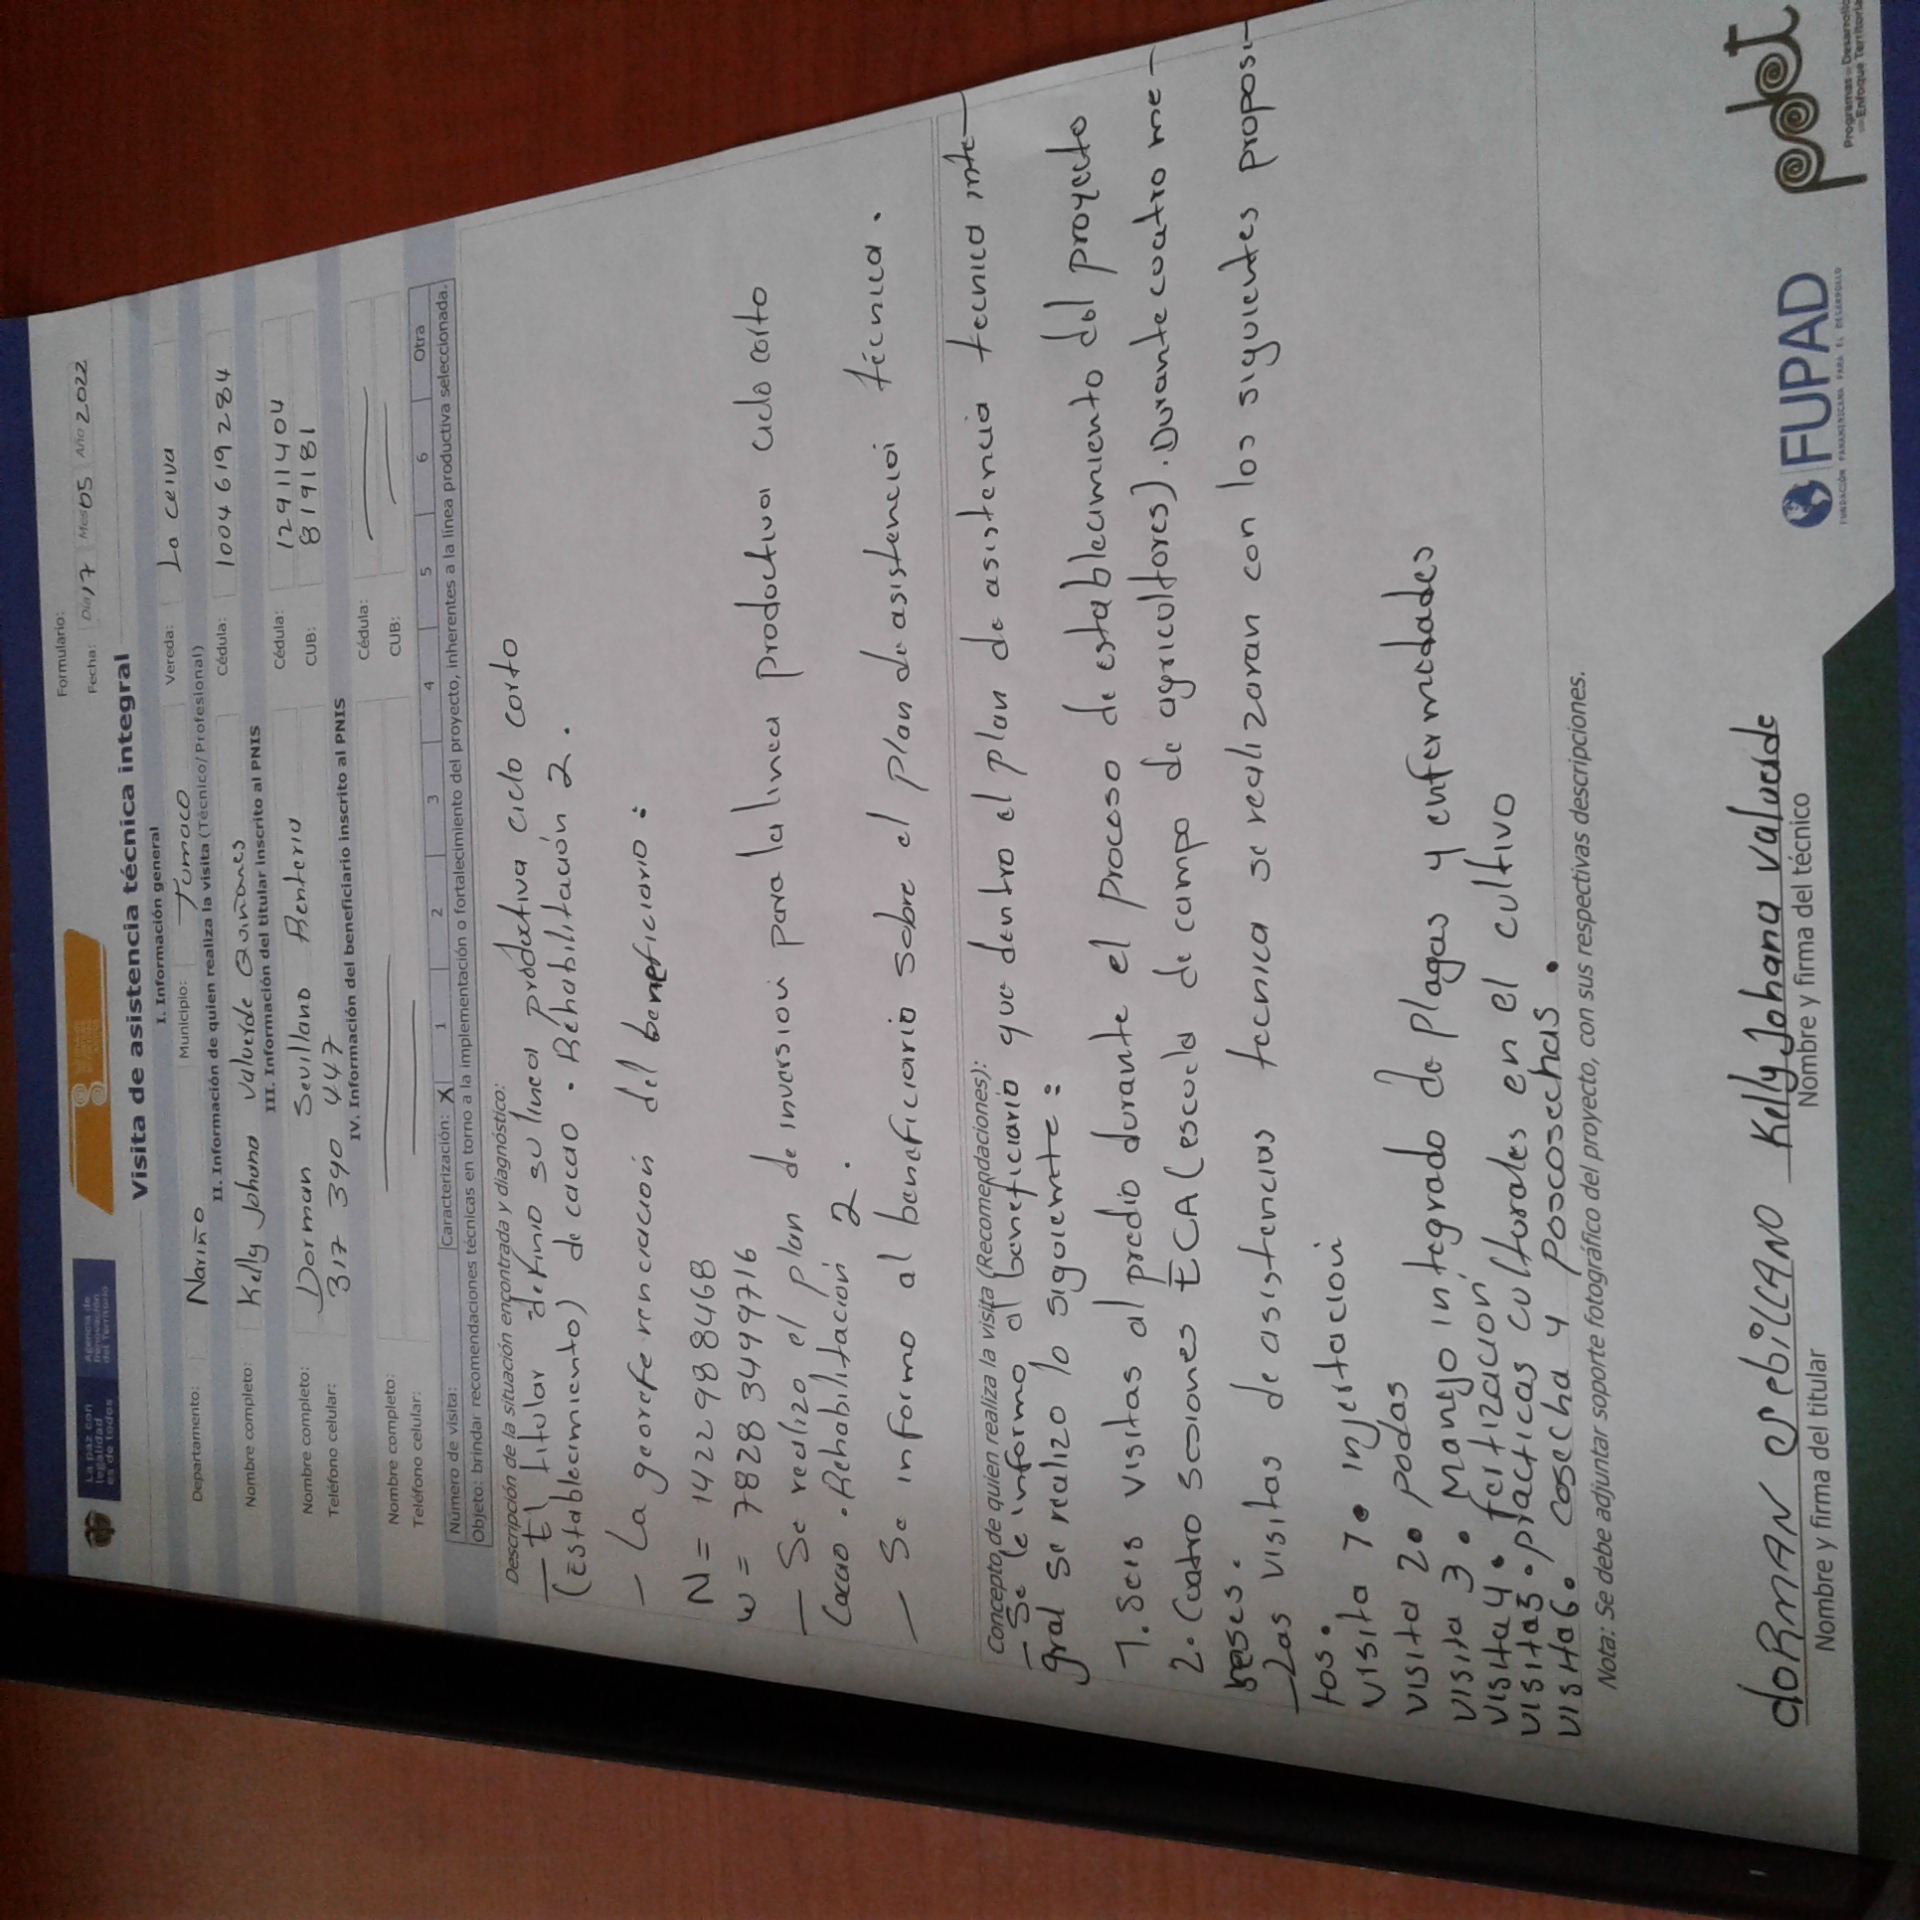 La paz con
legalidad
es de todos
Agencia de
Renovación
del Territorio
Formulario:
Fecha: Día 17 Mes 05 Año 2022
Visita de asistencia técnica integral
I. Información general
Departamento: Nariño Municipio: Tumaco Vereda: La ceiva
II. Información de quien realiza la visita (Técnico/Profesional)
Nombre completo: Kelly Johana Valverde Quiñones Cédula: 1004619284
III. Información del titular inscrito al PNIS
Nombre completo: Dorman Sevillano Renteria Cédula: 12911404
Teléfono celular: 317 390 447 CUB: 819181
IV. Información del beneficiario inscrito al PNIS
Nombre completo: Cédula:
Teléfono celular: CUB:
Número de visita: Caracterización: X 1 2 3 4 5 6 Otra
Objeto: brindar recomendaciones técnicas en torno a la implementación o fortalecimiento del proyecto, inherentes a la línea productiva seleccionada.
Descripción de la situación encontrada y diagnóstico:
- El titular definio su linea productiva ciclo corto
(Establecimiento) de cacao . Rehabilitación 2 .
- La georeferenciacion del beneficiario :
N = 142298 8468
W = 7828 3499716
- Se realizo el plan de inversion para la linea productiva ciclo corto
Cacao . Rehabilitación 2 .
- Se informo al beneficiario sobre el plan de asistencia técnica .
Concepto de quien realiza la visita (Recomendaciones):
- Se le informo al beneficiario que dentro el plan de asistencia tecnica inte-
gral se realizo lo siguiente :
1. Seis visitas al predio durante el Proceso de establecimiento del proyecto
2. Cuatro sesiones ECA (escuela de campo de agricultores). Durante cuatro me-
ses .
- Las visitas de asistencias tecnica se realizaran con los siguientes proposi-
tos .
Visita 1 . injertacion
Visita 2 . podas
Visita 3 . Manejo integrado de plagas y enfermedades
Visita 4 . fertizacion
Visita 5 . practicas culturales en el cultivo
Visita 6 . cosecha y poscosechas .
Nota: Se debe adjuntar soporte fotográfico del proyecto, con sus respectivas descripciones.
doRmAN SebiLLANO Kelly Johana Valverde
Nombre y firma del titular Nombre y firma del técnico
FUPAD
FUNDACIÓN PANAMERICANA PARA EL DESARROLLO
pdet
Programas de Desarrollo
con Enfoque Territorial